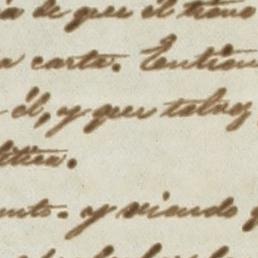 a de que el tiene
carta. Entien
él, y que talvez
lítica.
ento. y viendo